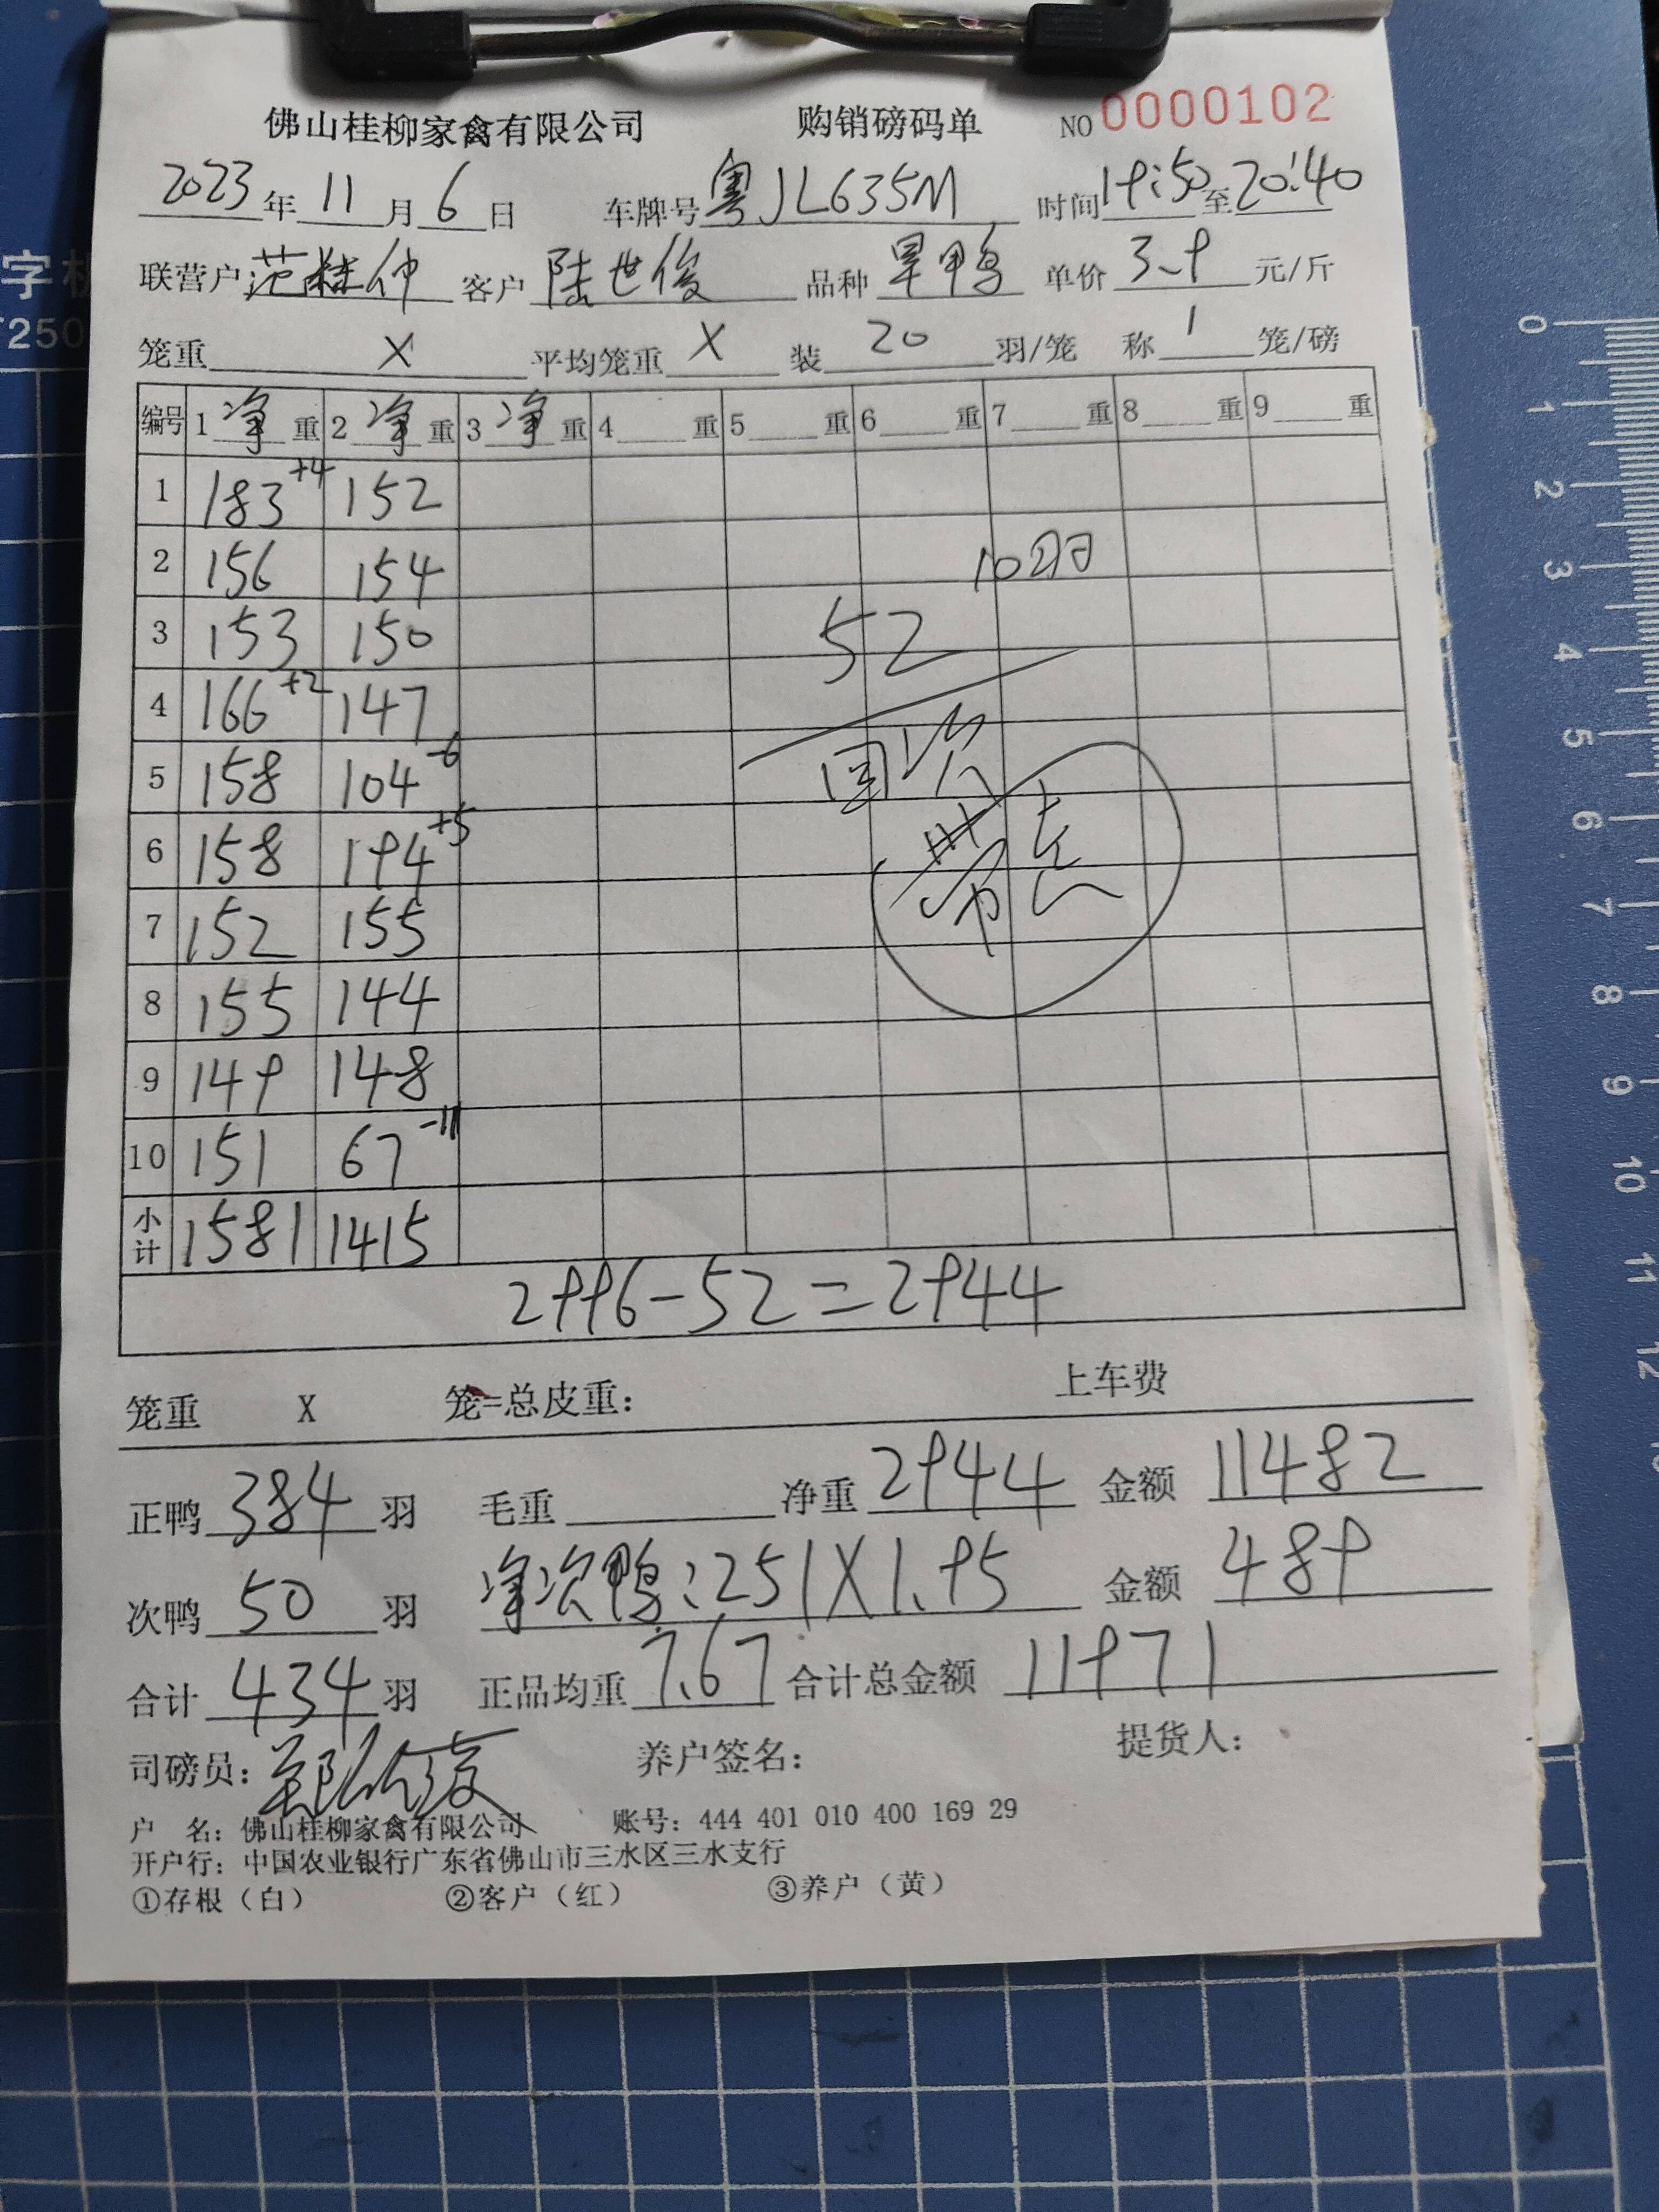 佛山桂柳家禽有限公司 购销磅码单 NO 0000102
2023年11月6日 车牌号粤JL635M 时间19:50至20:40
联营户范桂仲 客户陆世俊 品种旱鸭 单价3.9元/斤
笼重 X 平均笼重 X 装 20 羽/笼 称 1 笼/磅
编号 1净重 2净重 3净重 4 重 5 重 6 重 7 重 8 重 9 重
1 183+4 152
2 156 154
10日
3 153 150
52
4 166+2 147
5 158 104-6
6 158 194+5
7 152 155
8 155 144
9 149 148
10 151 67-11
小计 1581 1415
2996-52=2944
笼重 X 笼=总皮重: 上车费
正鸭384羽 毛重 净重2944 金额11482
次鸭50羽 净次鸭:251X1.95 金额489
合计434羽 正品均重7.67 合计总金额11971
司磅员: 养户签名: 提货人:
户 名: 佛山桂柳家禽有限公司 账号: 444 401 010 400 169 29
开户行: 中国农业银行广东省佛山市三水区三水支行
①存根（白） ②客户（红） ③养户（黄）
字
250
0
1
2
3
4
5
6
7
8
9
10
11
12